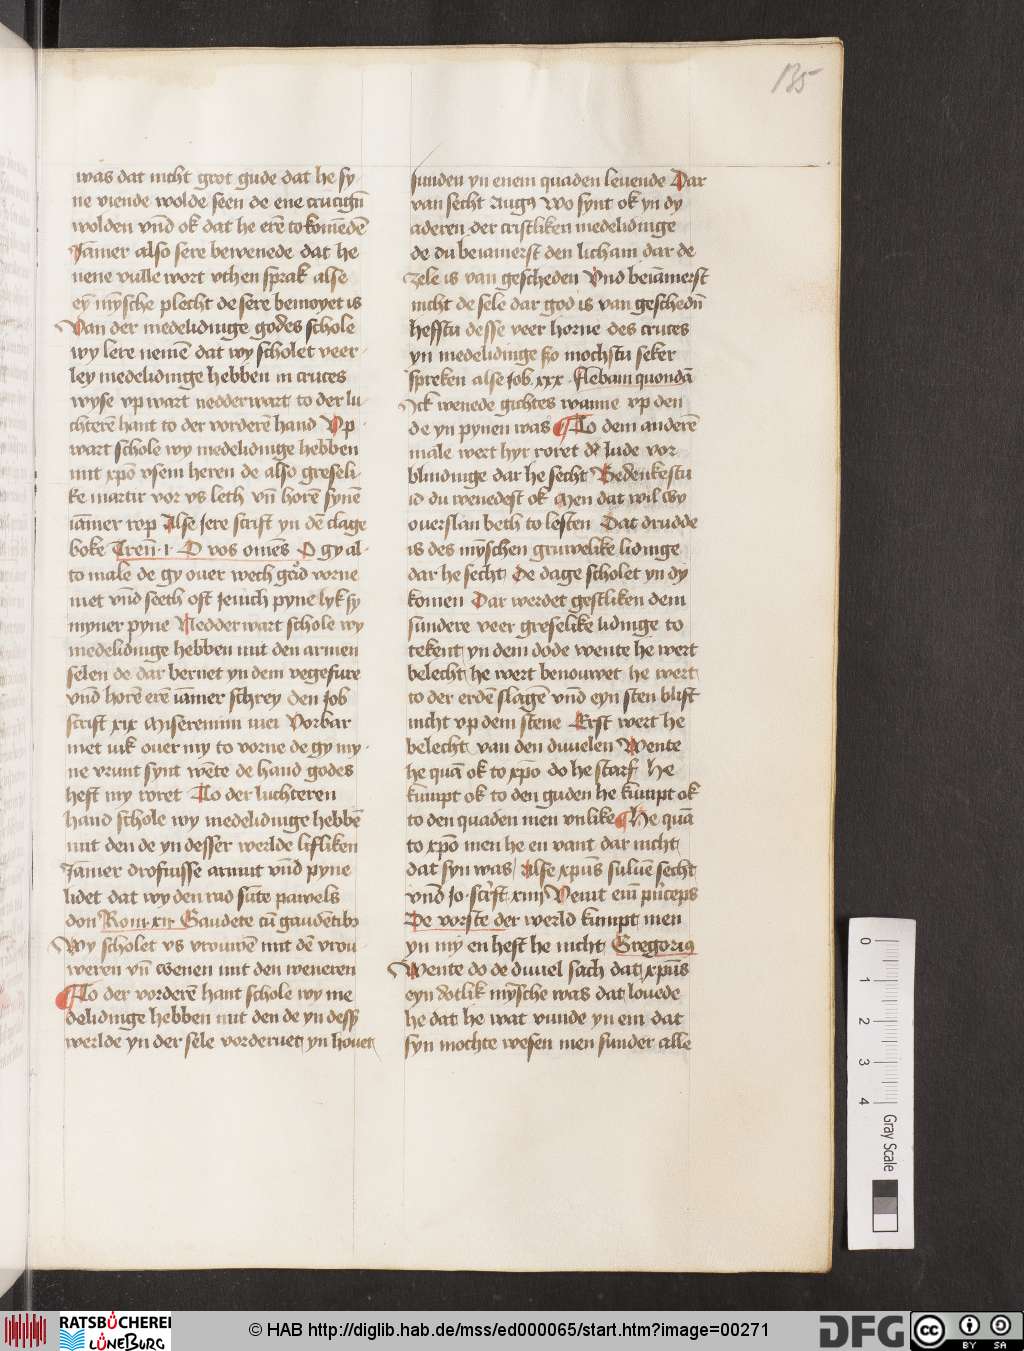 135
was dat nicht grot gude dat he sy
ne viende wolde seen de ene crucigū
wolden vnd ok dat he erē to komēdē
Jāmer also sere bewenede dat he
nene vulle wort vthen sprak alse
eȳ mȳsche plecht de sere bemoyet is
Van der medelidinge godes schole
wy lere nemē dat wy scholet veer
ley medelidinge hebben in cruces
wyse vp wart nedderwart to der lu
chterē hant to der vorderē hand Vp
wart schole wy medelidinge hebben
mit xp̄o vsem heren de also greseli
ke martir vor vs leth vn̄ horē synē
iāmer rop Alse Jere scrift yn dē clage
boke Tren̄ ı O vos om̄es O gy al
to male de gy ouer wech gād vorne
met vnd seeth oft jenich pyne lyk sy
myner pyne Nedderwart schole wy
medelidinge hebben mit den armen
selen de dar bernet yn dem vegefure
vnd horē erē iāmer schrey den Job
scrift xıx Miseremini mei Vorbar
met iuk ouer my to vorne de gy my
ne vrunt synt wēte de hand godes
heft my roret To der luchteren
hand schole wy medelidinge hebbē
mit den de yn desser werlde lifliken
Jāmer drofnisse armut vnd pyne
lidet dat wy den rad sūte pawels
don Rom xıı Gaudete cū gaudētibꝫ
Wy scholet vs vrouwē mit dē vrou
weren vn̄ wenen mit den weneren
To der vorderē hant schole wy me
delidinge hebben mit den de yn dess
werlde yn der sele vorderuet yn houet
sunden yn enem quaden leuende Dar
van secht Augꝰ Wo synt ok yn dy
aderen der cristliken medelidinge
de du beiamerst den licham dar de
zele is van gescheden Vnd beiāmerst
nicht de sele dar god is van geschedn̄
heffstu desse veer horne des cruces
yn medelidinge so mochstu seker
spreken alse Job xxx Flebam quondā
Ick wenede gichtes wanne vp den
de yn pynen was To dem anderē
male wert hyr roret dē Jude vor
blindinge dar he secht Bedenkestu
id du wenedest ok Men dat wil wy
ouerslan beth to lesten Dat drudde
is des mȳschen gruwelike lidinge
dar he secht De dage scholet yn dy
komen Dar werdet gestliken dem
sundere veer greselike lidinge to
tekent yn dem dode wente he wert
belecht he wert benouwet he wert
to der erdē slagē vnd eyn sten blift
nicht vp dem stene Erst wert he
belecht van den duuelen Wente
he quā ok to xp̄o do he starf He
kumpt ok to den guden he kumpt ok
to den quaden men vnlike He quā
to xp̄o men he en vant dar nicht
dat syn was Alse xp̄us suluē secht
vnd Jo scrift xıııı Venit em̄ pn̄ceps
De vorste der werld kumpt men
yn my en heft he nicht Gregoriꝰ
Wente do de duuel sach dat xp̄us
eyn dotlik mȳsche was dat louede
he dat he wat vunde yn em dat
syn mochte wesen men sunder alle
0 1 2 3 4
Gray Scale
RATSBÜCHEREI
LÜNEBURG
© HAB http://diglib.hab.de/mss/ed000065/start.htm?image=00271
DFG
cc BY SA